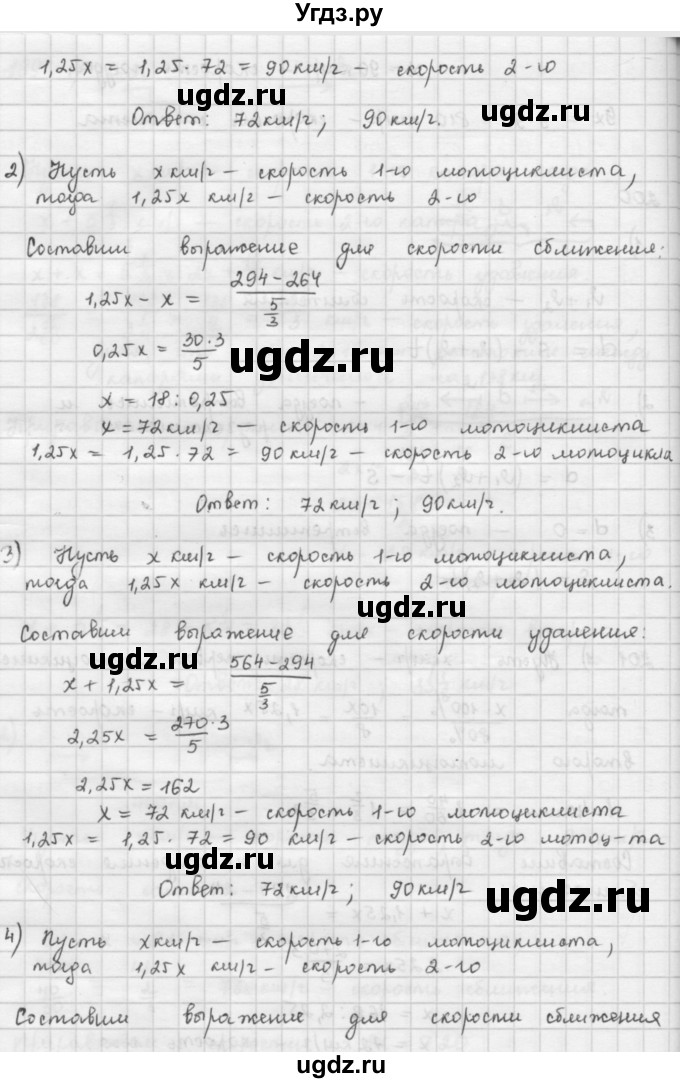 Угдз.ру
1,25x = 1,25 · 72 = 90 км/г – скорость 2-го
ugdz.ru ugdz.ru
Ответ: 72 км/г; 90 км/г.
2) Пусть x км/г – скорость 1-го мотоциклиста,
тогда 1,25x км/г – скорость 2-го
ugdz.ru
Составим выражение для скорости сближения:
1,25x – x = (294 – 264) / (5/3)
0,25x = (30·3)/5
ugdz.ru ugdz.ru
x = 18 : 0,25
x = 72 км/г – скорость 1-го мотоциклиста
1,25x = 1,25 · 72 = 90 км/г – скорость 2-го мотоцикла
Ответ: 72 км/г; 90 км/г.
ugdz.ru
3) Пусть x км/г – скорость 1-го мотоциклиста,
тогда 1,25x км/г – скорость 2-го мотоциклиста.
ugdz.ru
Составим выражение для скорости удаления:
x + 1,25x = (564 – 294) / (5/3)
ugdz.ru
2,25x = (270·3)/5
ugdz.ru
2,25x = 162
x = 72 км/г – скорость 1-го мотоциклиста
1,25x = 1,25 · 72 = 90 км/г – скорость 2-го мотоц-та
ugdz.ru
Ответ: 72 км/г; 90 км/г
ugdz.ru
4) Пусть x км/г – скорость 1-го мотоциклиста,
тогда 1,25x км/г – скорость 2-го
ugdz.ru
Составим выражение для скорости сближения
ugdz.ru